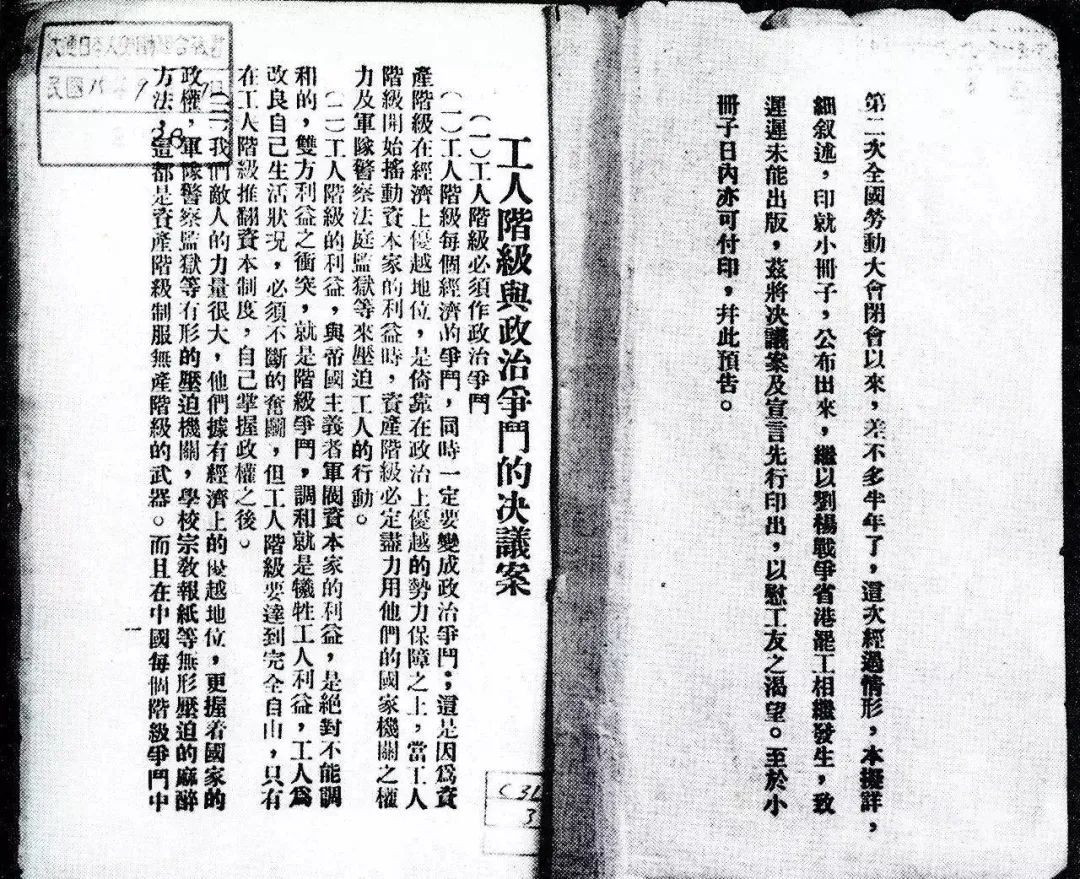 第二次全國勞動大會閉會以來，差不多半年了，這次經過情形，本擬詳，
細叙述，印就小冊子，公布出來，繼以劉楊戰爭省港罷工相繼發生，致
遲遲未能出版，茲將决議案及宣言先行印出，以慰工友之渴望。至於小
冊子日內亦可付印，幷此預告。
工人階級與政治爭鬥的决議案
（一）工人階級必須作政治爭鬥
（一）工人階級每個經濟的爭鬥，同時一定要變成政治爭鬥；這是因爲資
產階級在經濟上優越地位，是倚靠在政治上優越的勢力保障之上，當工人
階級開始搖動資本家的利益時，資產階級必定盡力用他們的國家機關之權
力及軍隊警察法庭監獄等來壓迫工人的行動。
（二）工人階級的利益，與帝國主義者軍閥資本家的利益，是絕對不能調
和的，雙方利益之衝突，就是階級爭鬥，調和就是犧牲工人利益，工人爲
改良自己生活狀况，必須不斷的奮鬭，但工人階級要達到完全自由，只有
在工人階級推翻資本制度，自己掌握政權之後。
（三）我們敵人的力量很大，他們據有經濟上的優越地位，更握着國家的
政權，軍隊警察監獄等有形的壓迫機關，學校宗教報紙等無形壓迫的麻醉
方法，這都是資產階級制服無產階級的武器。而且在中國每個階級爭鬥中
一
民國 八 年 9
30
C3L
3